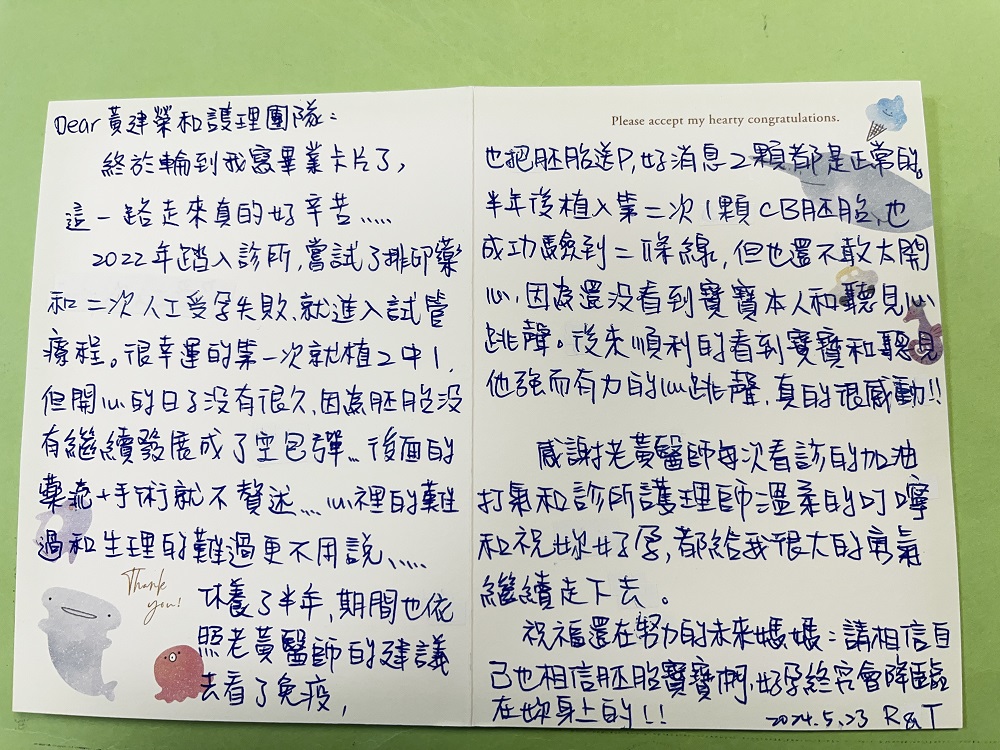 Dear 黃建榮和護理團隊：
終於輪到我寫畢業卡片了，
這一路走來真的好辛苦.....
2022年踏入診所，嘗試了排卵藥
和二次人工受孕失敗、就進入試管
療程。很幸運的第一次就植2中1，
但開心的日子沒有很久，因為胚胎沒
有繼續發展成了空包彈... 後面的
藥流+手術就不贅述....心裡的難
過和生理的難過更不用說.....
Thank
you!
休養了半年，期間也依
照老黃醫師的建議
去看了免疫，
Please accept my hearty congratulations.
也把胚胎送P，好消息2顆都是正常的。
半年後植入第二次1顆CB胚胎、也
成功驗到二條線，但也還不敢太開
心，因為還沒看到寶寶本人和聽見心
跳聲。後來順利的看到寶寶和聽見
他強而有力的心跳聲，真的很感動!!
感謝老黃醫師每次看診的加油
打氣和診所護理師溫柔的叮嚀
和祝妳好孕，都給我很大的勇氣
繼續走下去。
祝福還在努力的未來媽媽：請相信自
己也相信胚胎寶寶們，好孕終究會降臨
在妳身上的!!
2024.5.23 R&T